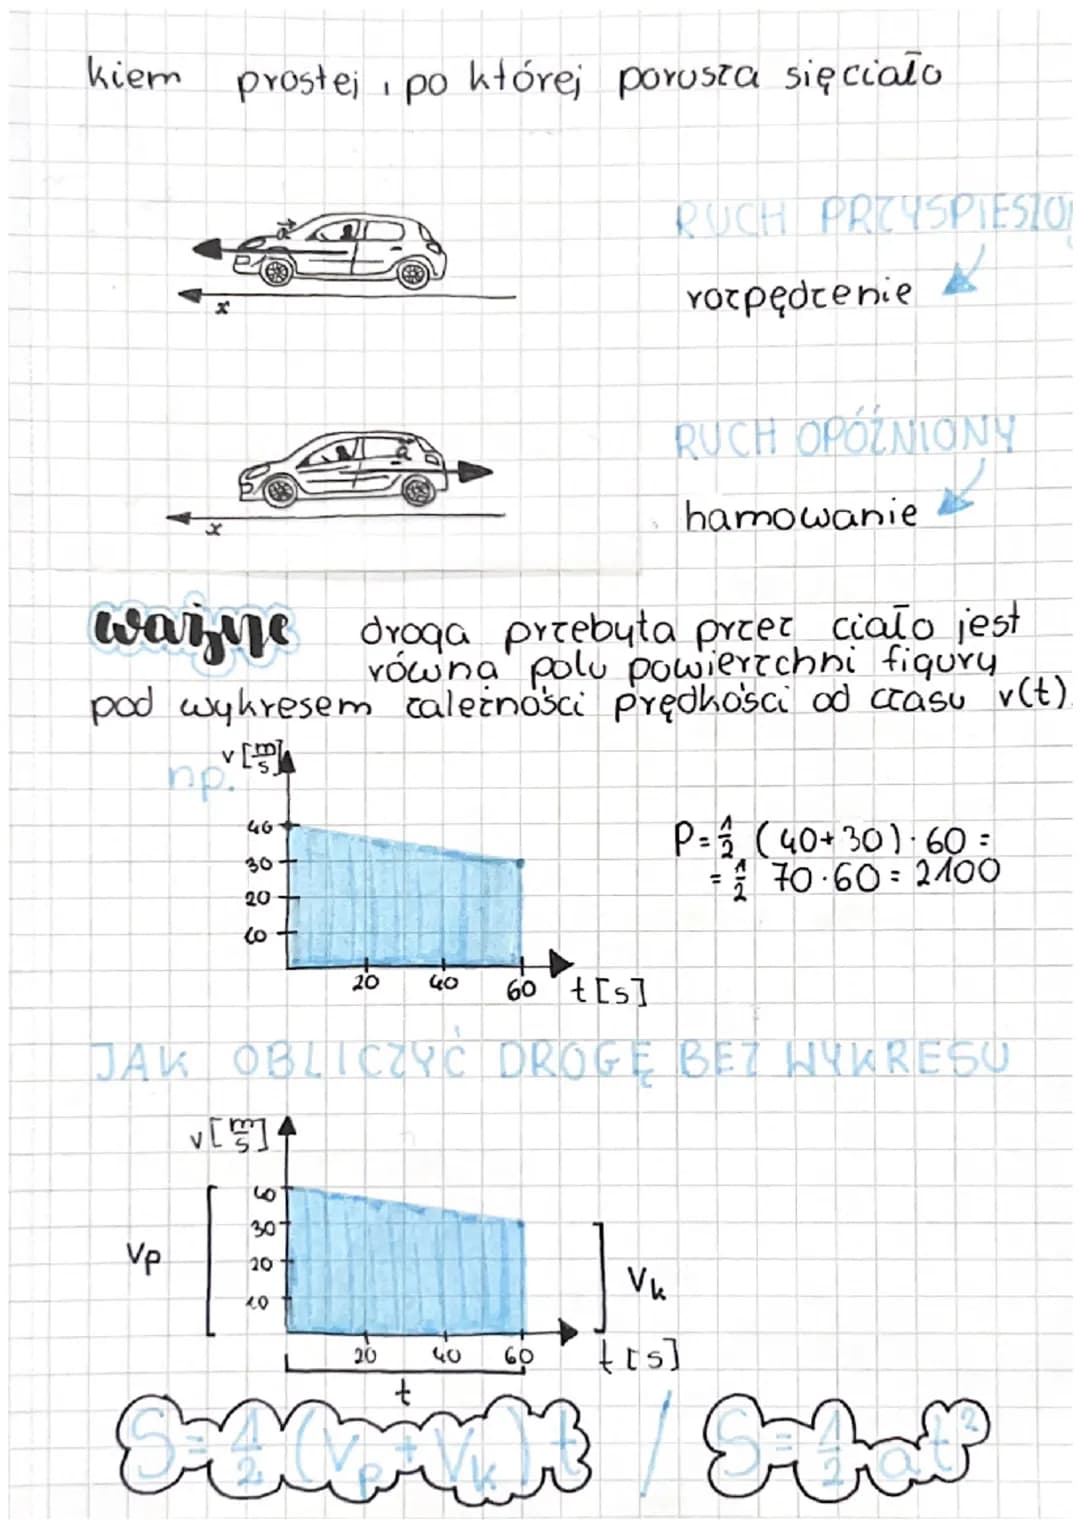 kiem prostej, po której porusza się ciało
a
x
RUCH PRZYSPIESZON
rozpędzenie
a
x
RUCH OPÓŹNIONY
hamowanie
ważne droga przebyta przez ciało jest
równa polu powierzchni figury
pod wykresem zależności prędkości od czasu v(t).
np.
v [m/s]
40
30
20
10
20 40 60 t[s]
P = 1/2 (40+30) · 60 =
= 1/2 70 · 60 = 2100
JAK OBLICZYĆ DROGĘ BEZ WYKRESU
v [m/s]
40
30
20
10
Vp
Vk
20 40 60 t[s]
t
S = 1/2 (Vp + Vk) t / S = 1/2 at²